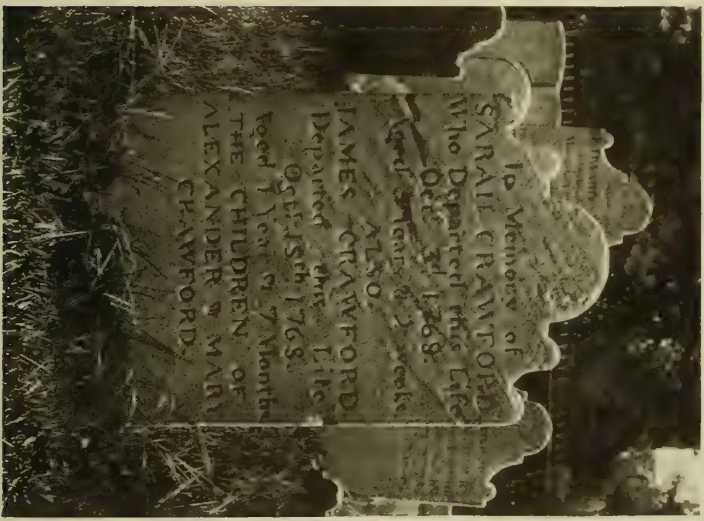 To Memory of
SARAH CRAWFORD
Who Departed this Life
Oct. 3d 1768.
Aged Years & Weeks
ALSO
JAMES CRAWFORD
Departed this Life
Oct. 15th 1768.
Aged 1 Year & 7 Months
THE CHILDREN OF
ALEXANDER & MARY
CRAWFORD.